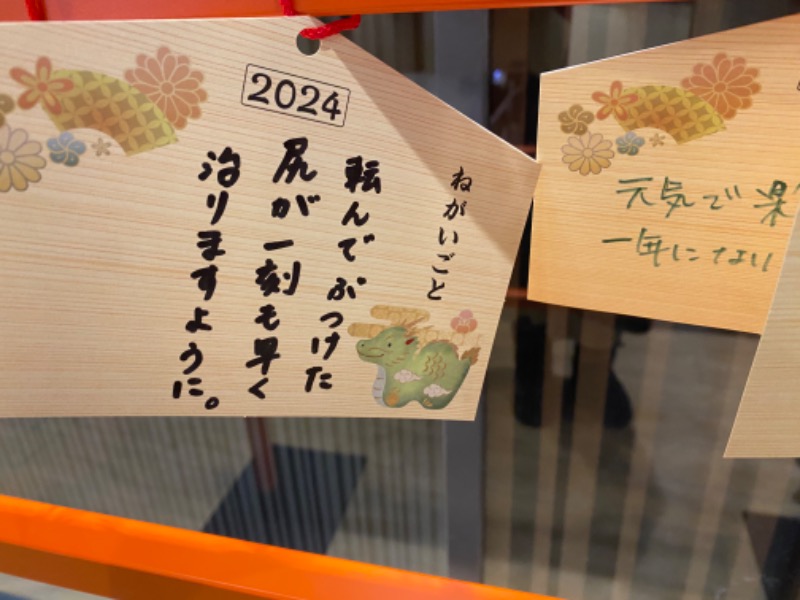 2024
ねがいごと
転んでぶつけた
尻が一刻も早く
治りますように。
元気で
一年にない